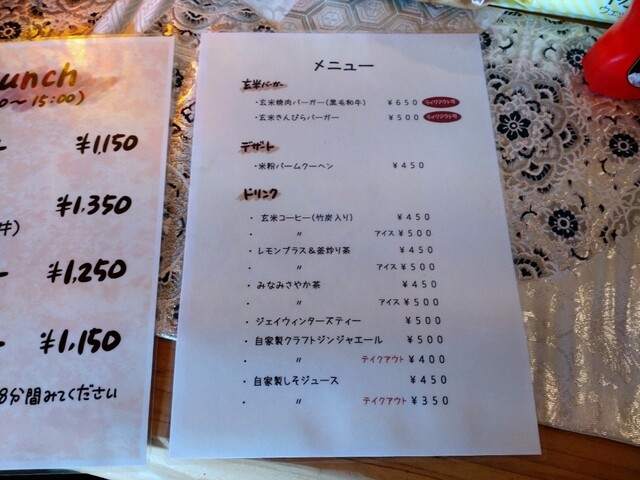 unch
0〜15:00)
¥1,150
¥1,350
丼)
¥1,250
¥1,150
8分間みてください
メニュー
玄米バーガー
・玄米焼肉バーガー(黒毛和牛) ¥650 テイクアウト可
・玄米きんぴらバーガー ¥500 テイクアウト可
デザート
・米粉バームクーヘン ¥450
ドリンク
・ 玄米コーヒー(竹炭入り) ¥450
・ 〃 アイス ¥500
・ レモングラス&釜炒り茶 ¥450
・ 〃 アイス ¥500
・ みなみさやか茶 ¥450
・ 〃 アイス ¥500
・ ジェイウィンターズティー ¥500
・ 自家製クラフトジンジャエール ¥500
・ 〃 テイクアウト ¥400
・ 自家製しそジュース ¥450
・ 〃 テイクアウト ¥350